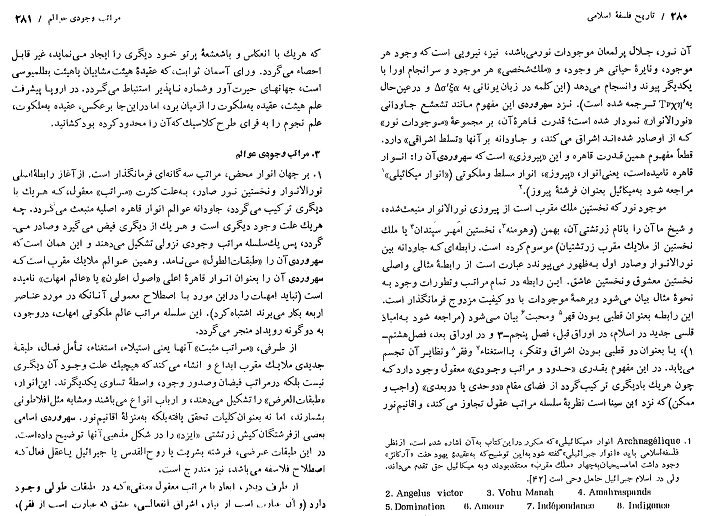 ۲۸۰ / تاریخ فلسفهٔ اسلامی
آن نور، جلال پر لمعان موجودات نورمی‌باشد، نیز، نیرویی است که وجود هر
موجود، ونایرهٔ حیاتی هر وجود، و «ملک‌شخصی» هر موجود و سرانجام اورا با
یکدیگر پیوند وانسجام می‌دهد (این‌کلمه در زبان یونانی به Δα'ξα و درعین‌حال
به Τυχη' ترجمه شده است). نزد سهروردی این مفهوم مانند تشعشع جاودانی
«نورالانوار» نمودار شده است؛ قدرت قاهرهٔ آن، بر مجموعهٔ «موجودات نور»
که از اوصادر شده‌اند اشراق می‌کند، و جاودانه بر آنها «تسلط اشراقی» دارد.
قطعاً مفهوم همین قدرت قاهره و این «پیروزی» است که سهروردی آن را: انوار
قاهره نامیده‌است، یعنی‌انوار، «پیروز»، انوار مسلط وملکوتی («انوار میکائیلی»۱
مراجعه شود به‌میکائیل بعنوان فرشتهٔ پیروز).۲
موجود نور که نخستین ملک مقرب است از پیروزی نورالانوار منبعث‌شده،
و شیخ ما آن را بانام زرتشتی‌آن، بهمن (وهومنه۳، نخستین اَمْهر سپندان۴ یا ملک
نخستین از ملایک مقرب زرتشتیان) موسوم‌کرده است. رابطه‌ای که جاودانه بین
نورالانوار وصادر اول به‌ظهور می‌پیوندد عبارت است از رابطهٔ مثالی واصلی
نخستین معشوق ونخستین عاشق. این رابطه در تمام مراتب وتطورات وجود به
نحوهٔ مثال بیان می‌شود وبرهمهٔ موجودات با دو کیفیت مزدوج فرمانگذار است.
این رابطه بعنوان قطبی بودن قهر۵ ومحبت۶ بیان می‌شود (مراجعه شود به‌امباذ
قلسی جدید در اسلام، در اوراق قبل، فصل پنجم-۳ و در اوراق بعد، فصل‌هشتم-
۱)، یا بعنوان دو قطبی بودن اشراق وتفکر، یااستغناء۷ وفقر۸ ونظایر آن تجسم
می‌یابد. در این مفهوم بقدری «حدود و مراتب وجودی» معقول وجود دارد که
چون هریک بادیگری ترکیب‌گردد از فضای مقام «دوحدی یا دوبعدی» (واجب و
ممکن) که نزد ابن سینا است نظریهٔ سلسله مراتب عقول تجاوز می‌کند، واقانیم‌نور
۱. Archnagélique انوار «میکائیلی» که مکرر دراین‌کتاب به‌آن اشاره شده است، ازنظر
فلسفهٔ‌اسلامی باید «انوار جبرائیلی» گفته شود به‌این توضیح‌که به‌عقیدهٔ یهود هفت «آرکانژ»
وجود داشت امامسیحیان‌به‌چهار «ملک مقرب» معتقدبودند وبه میکائیل حق تقدم می‌داند،
ولی در اسلام جبرائیل حامل وحی است [۴۲].
2. Angelus victor 3. Vohu Manah 4. Amahraspands
5. Domination 6. Amour 7. Indépondance 8. Indigence
مراتب وجودی عوالم / ۲۸۱
که هریک با انعکاس و باشعشعهٔ پرتو خود دیگری را ایجاد می‌نماید، غیر قابل
احصاء می‌گردد. ورای آسمان ثوابت، که عقیدهٔ هیئت مشایان یاهیئت بطلمیوسی
است، جهانهای حیرت‌آور وشماره ناپذیر استنباط می‌گردد. در اروپا پیشرفت
علم هیئت، عقیده به‌ملکوت را از میان برد، اما دراین‌جا برعکس، عقیده به‌ملکوت،
علم نجوم را به فرای طرح کلاسیک که‌آن را محدود کرده بود کشانید.
۳. مراتب وجودی عوالم
۱. بر جهان انوار محض، مراتب سه‌گانه‌ای فرمانگذار است. از آغاز رابطهٔ‌اصلی
نورالانوار ونخستین نور صادر، به‌علت کثرت «مراتب» معقول، که هریک با
دیگری ترکیب می‌گردد، جاودانه عوالم انوار قاهره اصلیه منبعث می‌گردد. چه
هریک علت وجود دیگری است و هریک از دیگری فیض می‌گیرد وصادر می-
گردد، پس یک‌سلسله مراتب وجودی نزولی تشکیل می‌دهند و این همان است که
سهروردی آن را «طبقات‌الطول» می‌نامد. وهمین عوالم ملایک مقرب است که
سهروردی آن را بعنوان انوار قاهرهٔ اعلی «اصول اعلون» یا «عالم امهات» نامیده
است (نباید امهات را دراین مورد با اصطلاح معمولی آنانکه در مورد عناصر
اربعه بکار می‌برند اشتباه کرد). این سلسله مراتب عالم ملکوتی امهات، دروجود،
به دو گونه رویداد منجر می‌گردد.
از طرفی، «مراتب مثبت» آنها یعنی استیلاء، استغناء، تأمل فعال، طبقهٔ
جدیدی ملایک مقرب ابداع و انشاء می‌کند که هیچیک علت وجود آن دیگری
نیست بلکه درمراتب فیضان وصدور وجود، واسطهٔ تساوی یکدیگرند. این‌انوار،
«طبقات‌العرض» را تشکیل می‌دهند، و ارباب انواع می‌باشند ومشابه مثل‌افلاطونی
بشمارند، اما نه بعنوان‌کلیات تحقق یافته‌بلکه به‌منزلهٔ اقانیم‌نور. سهروردی اسامی
بعضی از فرشتگان کیش زرتشتی «ایزد» را در شکل مذهبی آنها توضیح داده‌است.
در این طبقات عرضی، فرشته بشریت یا روح‌القدس یا جبرائیل یاعقل فعال که
اصطلاح فلاسفه می‌باشد، نیز مندرج است.
از طرف دیگر، ابعاد یا مراتب معقول «منفی» که در طبقات طولی وجود
دارد (و آن عبارت است از نیاز، اشراق انفعالی، عشق که عبارت است از فقر)،